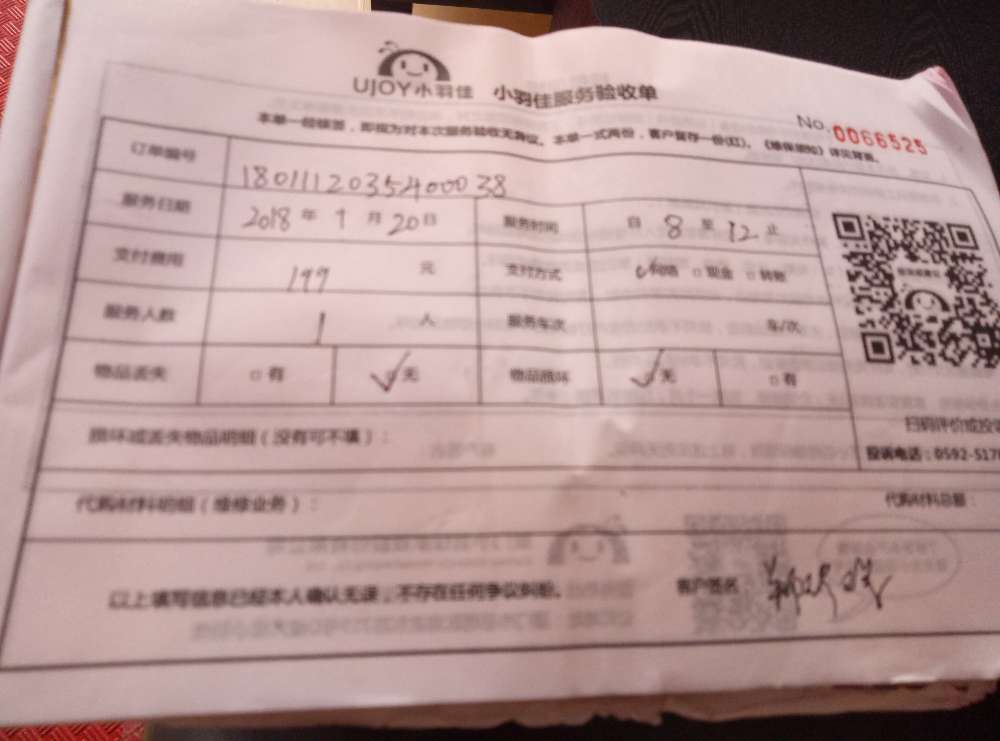 UJOY小羽佳 小羽佳服务验收单
No. 0066525
本单一经核签，即视为对本次服务验收无异议。本单一式两份，客户留存一份(红)。《维保须知》详见背面。
订单编号 1801112035400038
服务日期 2018 年 1 月 20 日 服务时间 自 8 至 12 止
支付费用 199 元 支付方式 ✓网络 □现金 □转账
服务人数 1 人 服务车次 车/次
物品丢失 □有 ✓无 物品损坏 ✓无 □有
扫码评价或投诉
损坏或丢失物品明细（没有可不填）：
投诉电话：0592-517
代购材料明细（维修业务）： 代购材料总额：
以上填写信息已经本人确认无误，不存在任何争议纠纷。 客户签名